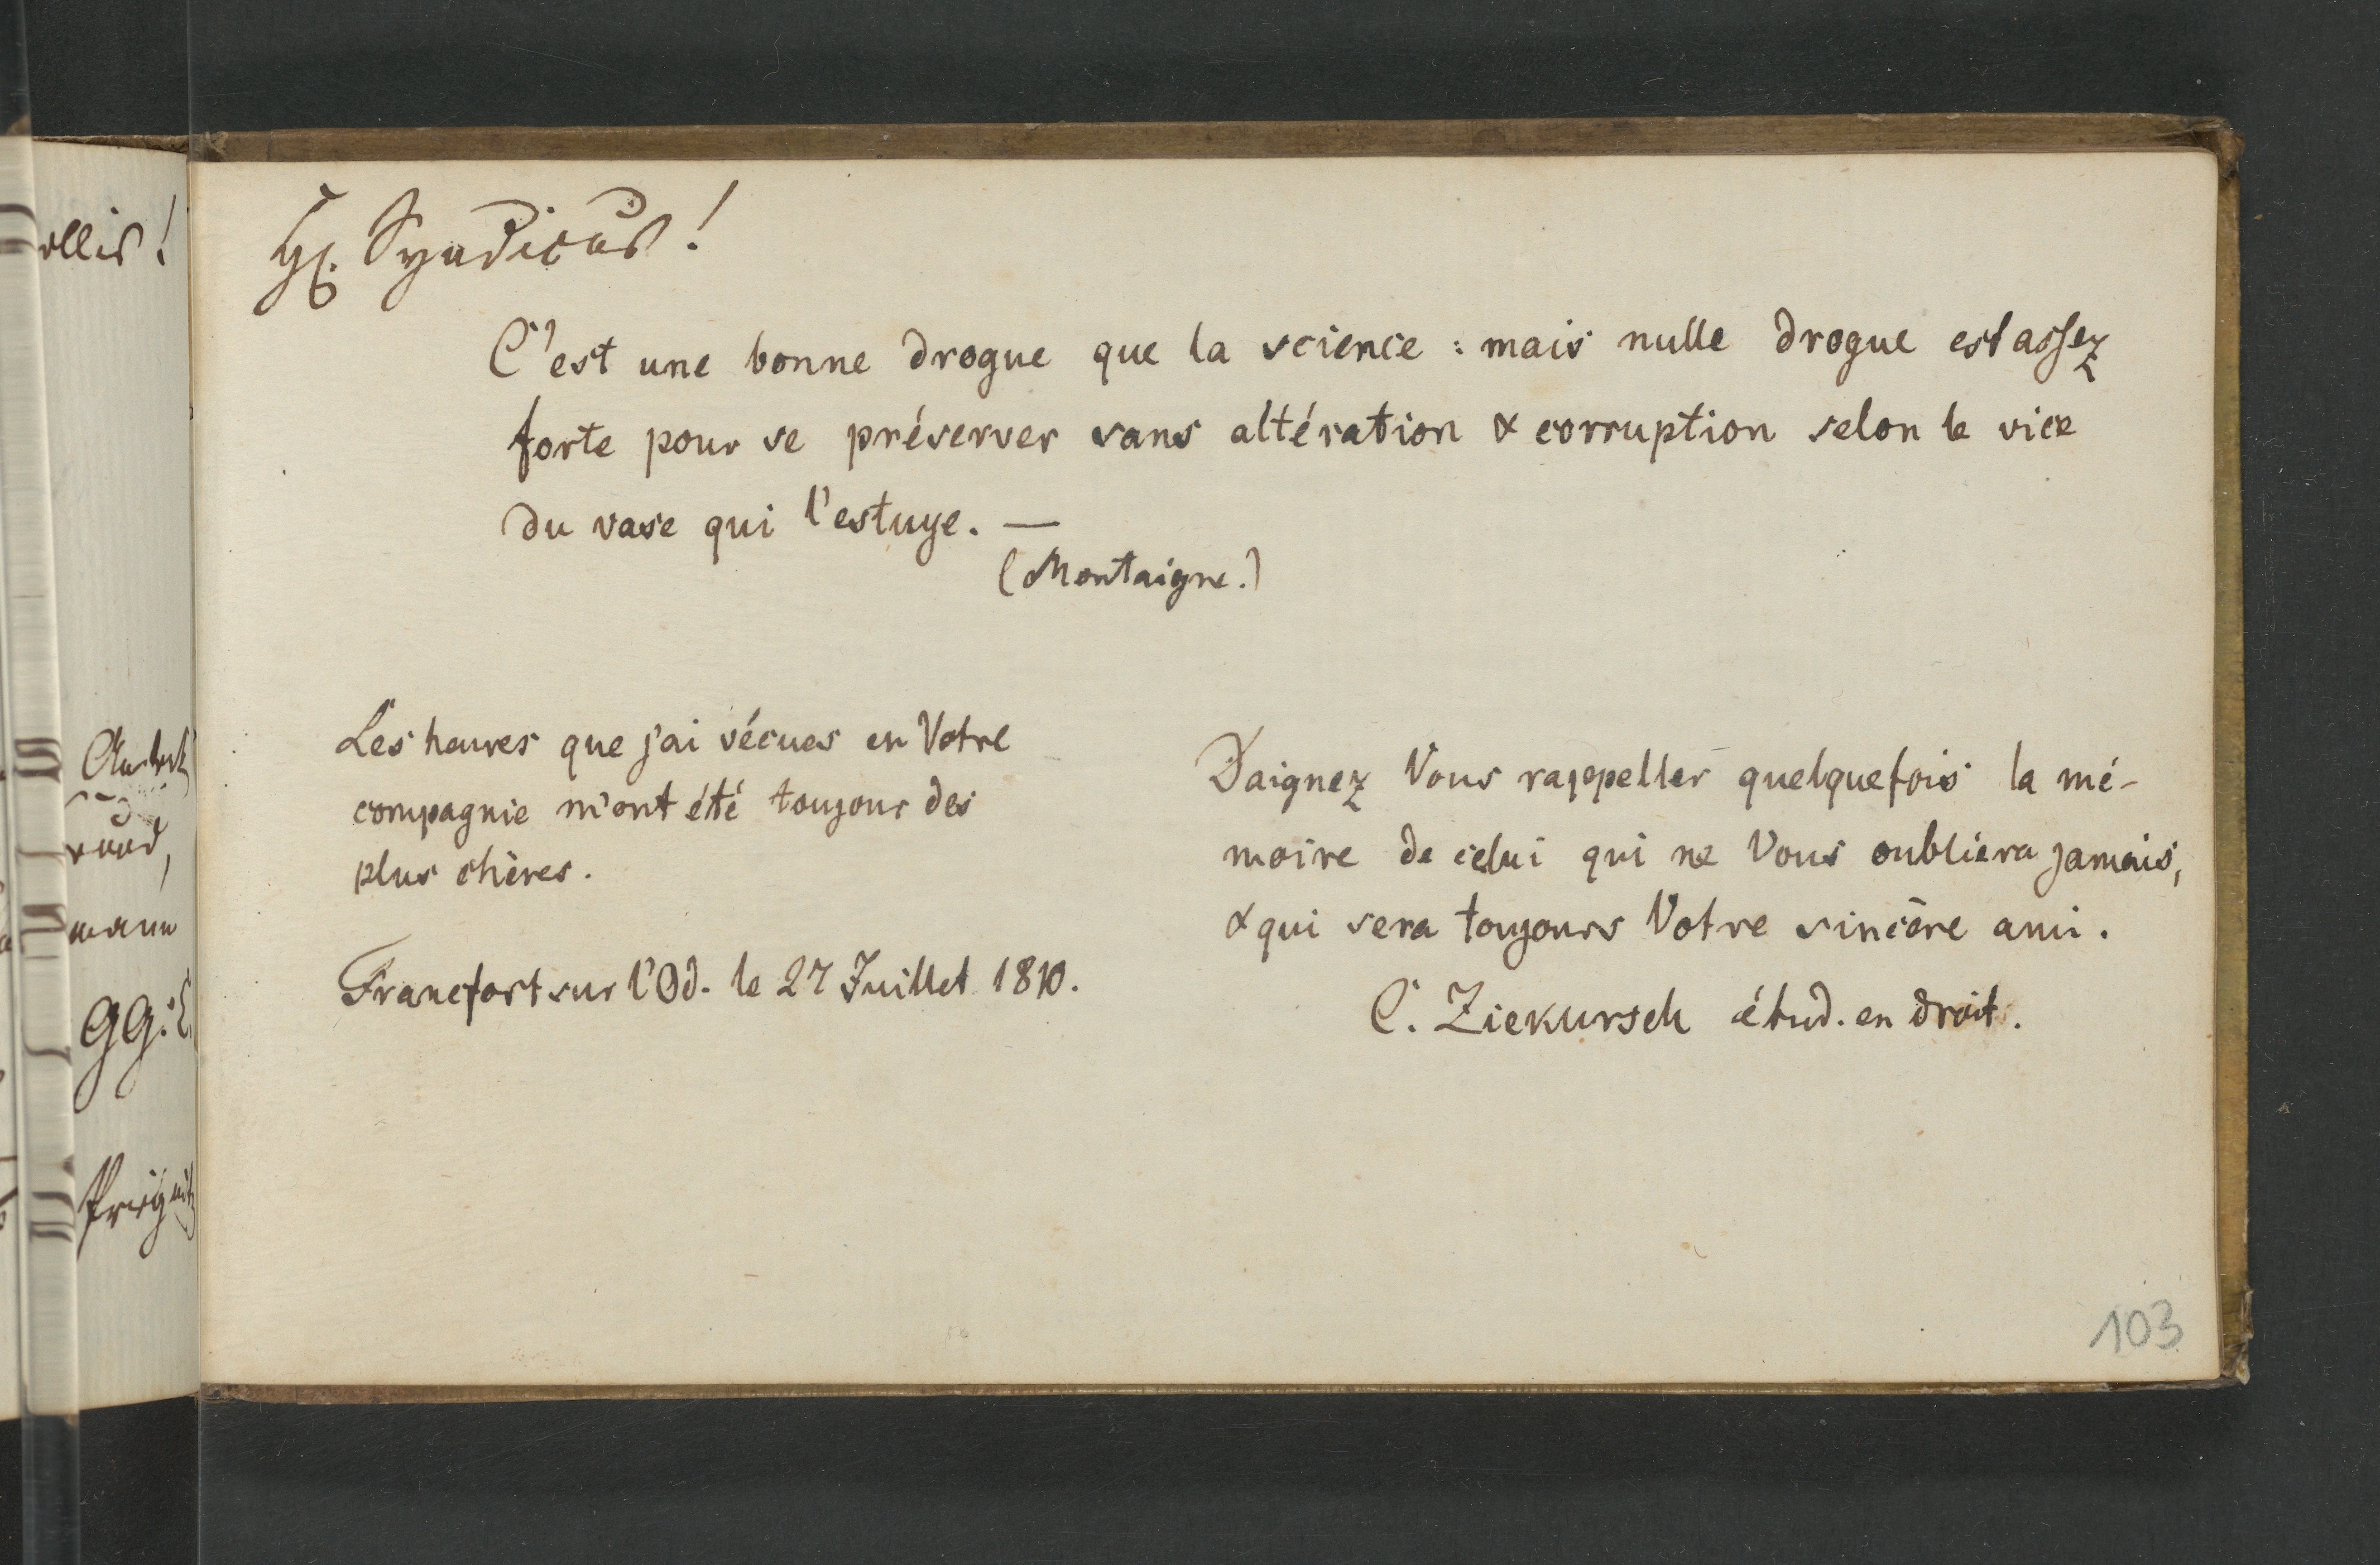 Hl. Syndicus!
C'est une bonne drogue que la science : mais nulle drogue est assez
forte pour se préserver sans altération & corruption selon le vice
du vase qui l'estuye. —
(Montaigne.)
Les heures que j'ai vécues en Votre
compagnie m'ont été toujour des
plus chères.
Francfort sur l'Od. le 27 Juillet 1810.
Daignez Vous rappeller quelquefois la mé-
moire de celui qui ne Vous oubliera jamais,
& qui sera toujours Votre sincère ami.
C. Ziekursch étud. en droit.
103
ollis!
mann
GG: